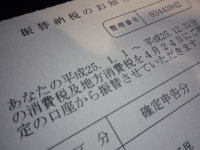 振替納税のお知ら
整理番号
あなたの平成25.1.1～平成25.12.31
の消費税及地方消費税を4月24日に
定の口座から振替させていただきます
区分
確定申告分